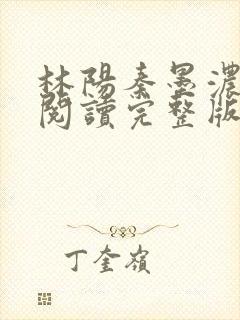 林陽秦墨濃
閱讀完整版
丁奎嶺